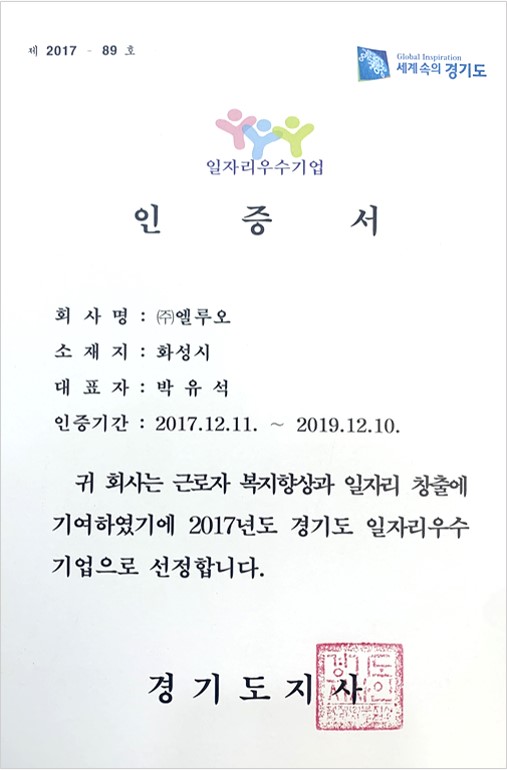 제 2017 - 89 호
Global Inspiration
세계속의 경기도
일자리우수기업
인 증 서
회 사 명 : ㈜엘루오
소 재 지 : 화성시
대 표 자 : 박 유 석
인증기간 : 2017.12.11. ~ 2019.12.10.
귀 회사는 근로자 복지향상과 일자리 창출에
기여하였기에 2017년도 경기도 일자리우수
기업으로 선정합니다.
경 기 도 지 사